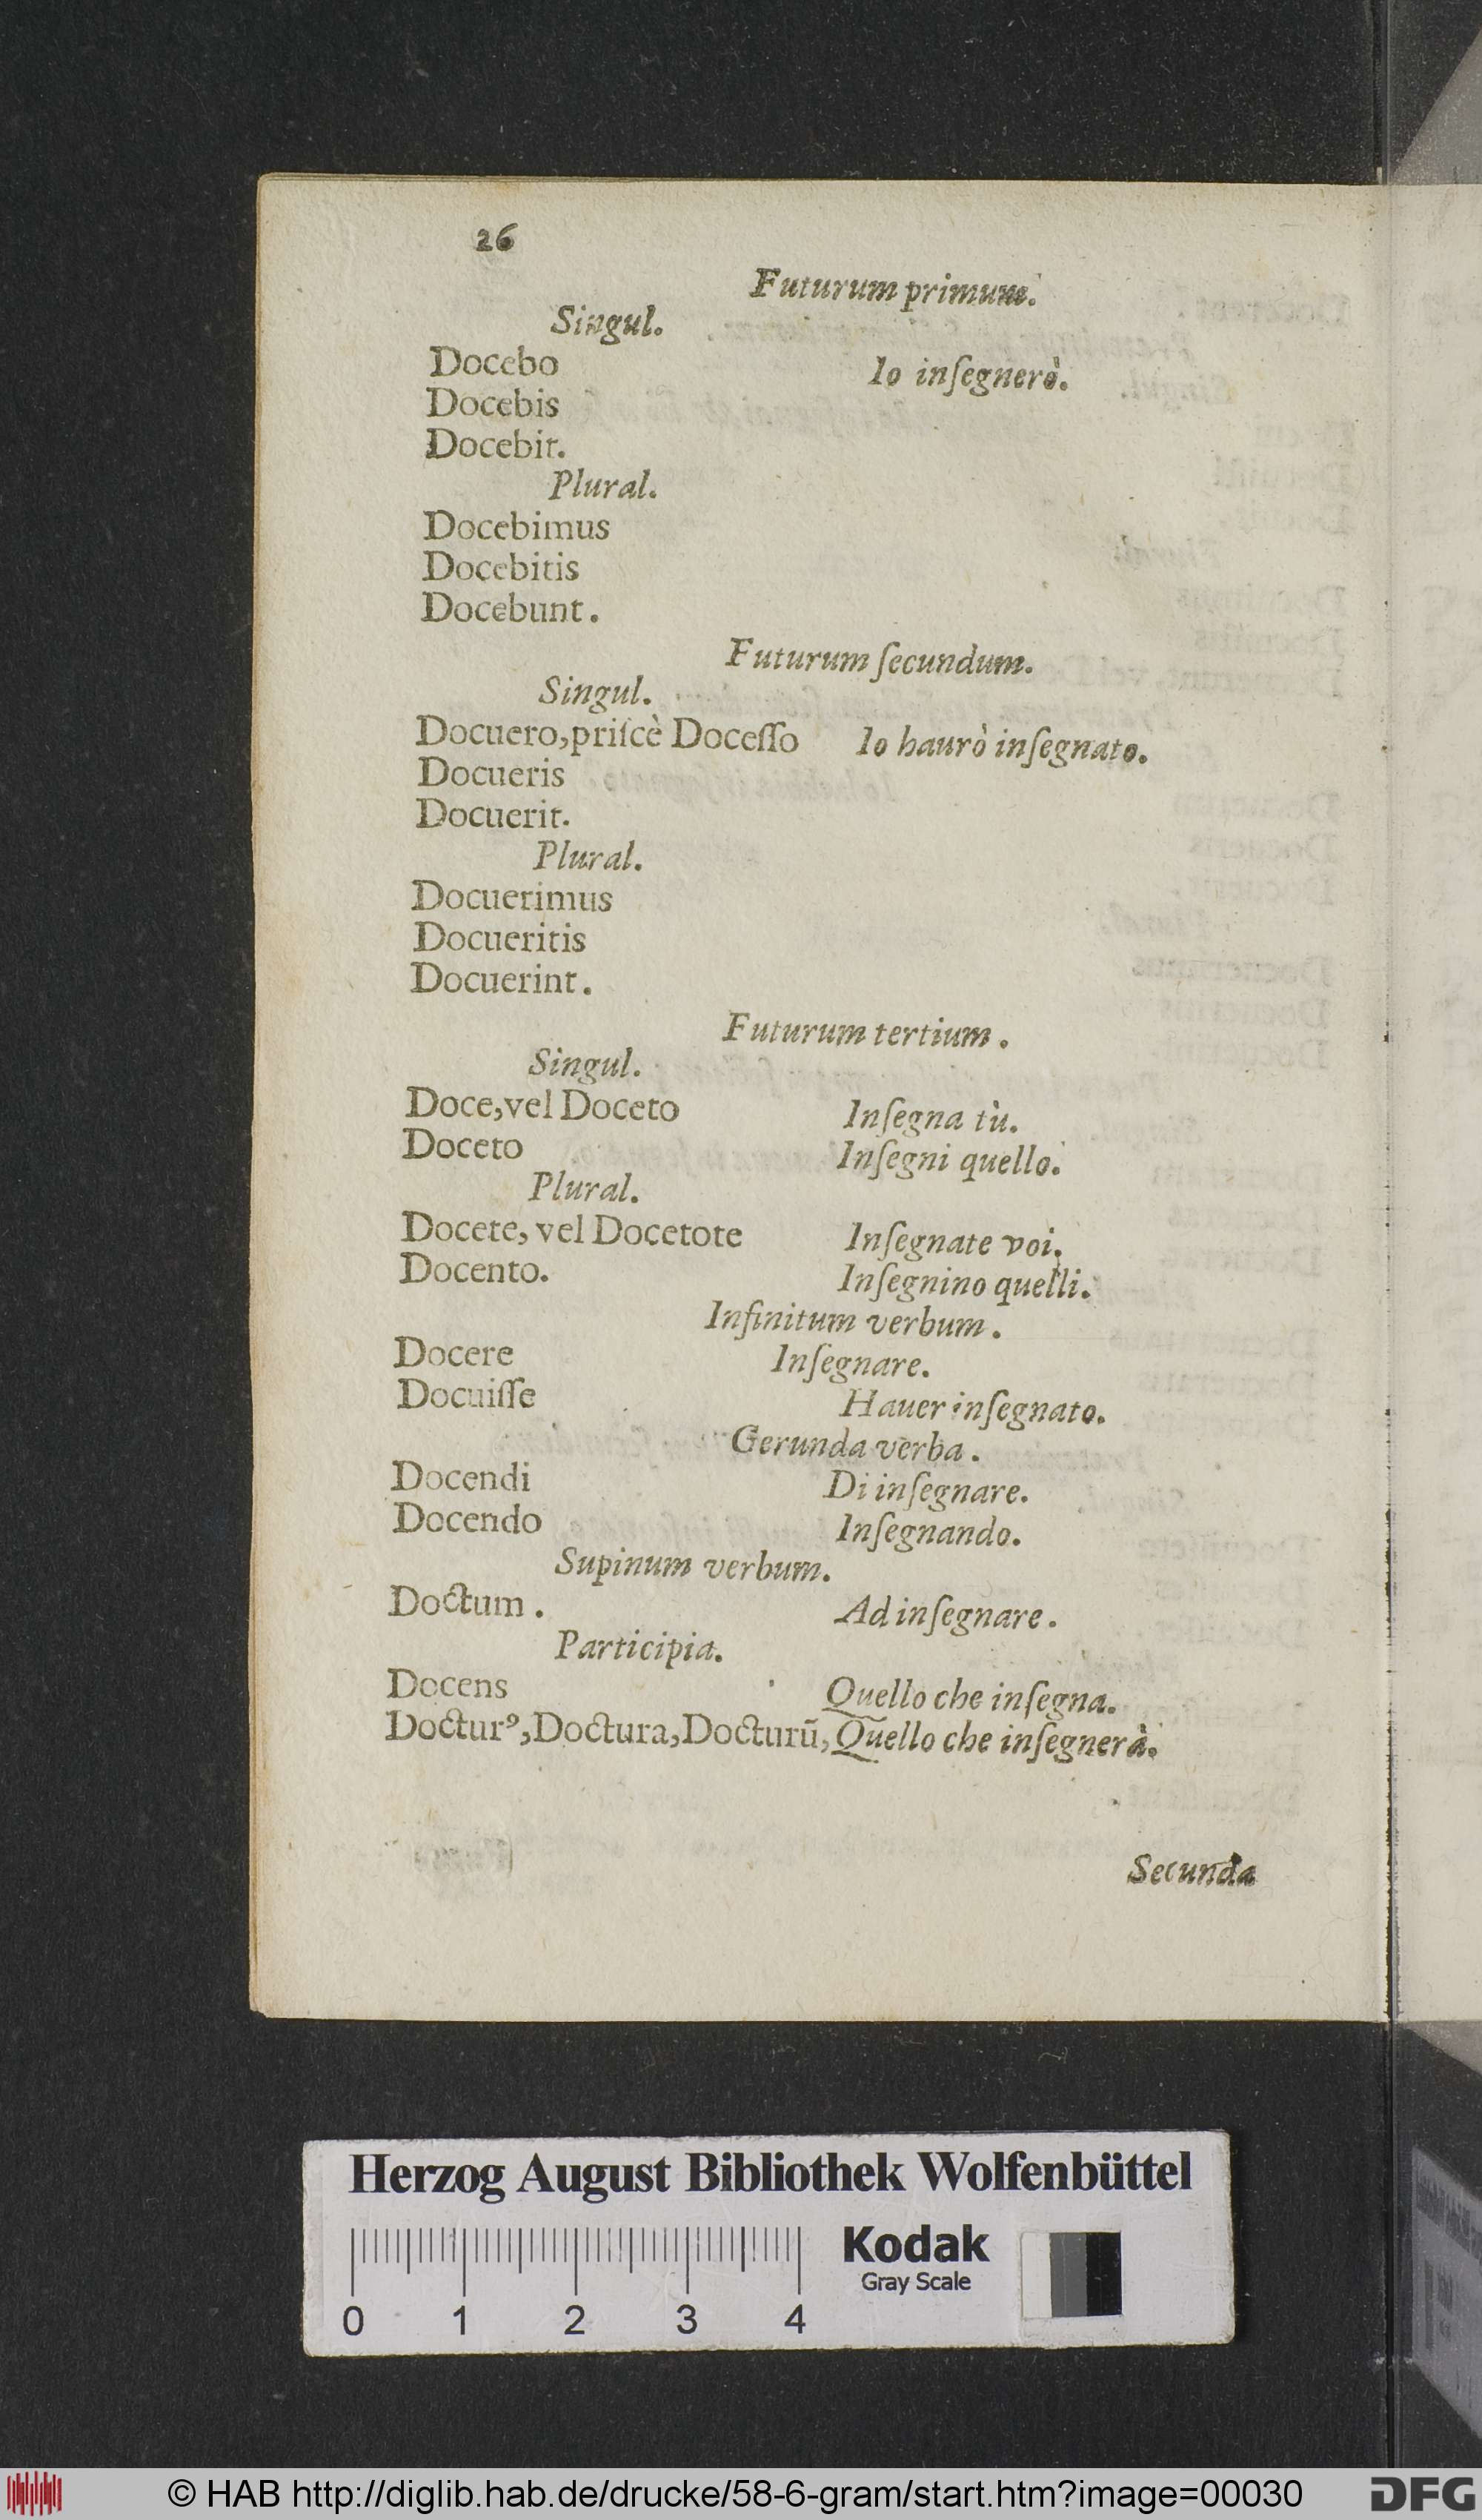 26
Futurum primum.
Singul.
Docebo Io inſegnerò.
Docebis
Docebit.
Plural.
Docebimus
Docebitis
Docebunt.
Futurum ſecundum.
Singul.
Docuero, priſcè Doceſſo Io haurò inſegnato.
Docueris
Docuerit.
Plural.
Docuerimus
Docueritis
Docuerint.
Futurum tertium.
Singul.
Doce, vel Doceto Inſegna tù.
Doceto Inſegni quello.
Plural.
Docete, vel Docetote Inſegnate voi.
Docento. Inſegnino quelli.
Infinitum verbum.
Docere Inſegnare.
Docuiſſe Hauer inſegnato.
Gerunda verba.
Docendi Di inſegnare.
Docendo Inſegnando.
Supinum verbum.
Doctum. Ad inſegnare.
Participia.
Docens Quello che inſegna.
Docturꝰ, Doctura, Docturū, Quello che inſegnerà.
Secunda
Herzog August Bibliothek Wolfenbüttel
Kodak
Gray Scale
0 1 2 3 4
© HAB http://diglib.hab.de/drucke/58-6-gram/start.htm?image=00030
DFG